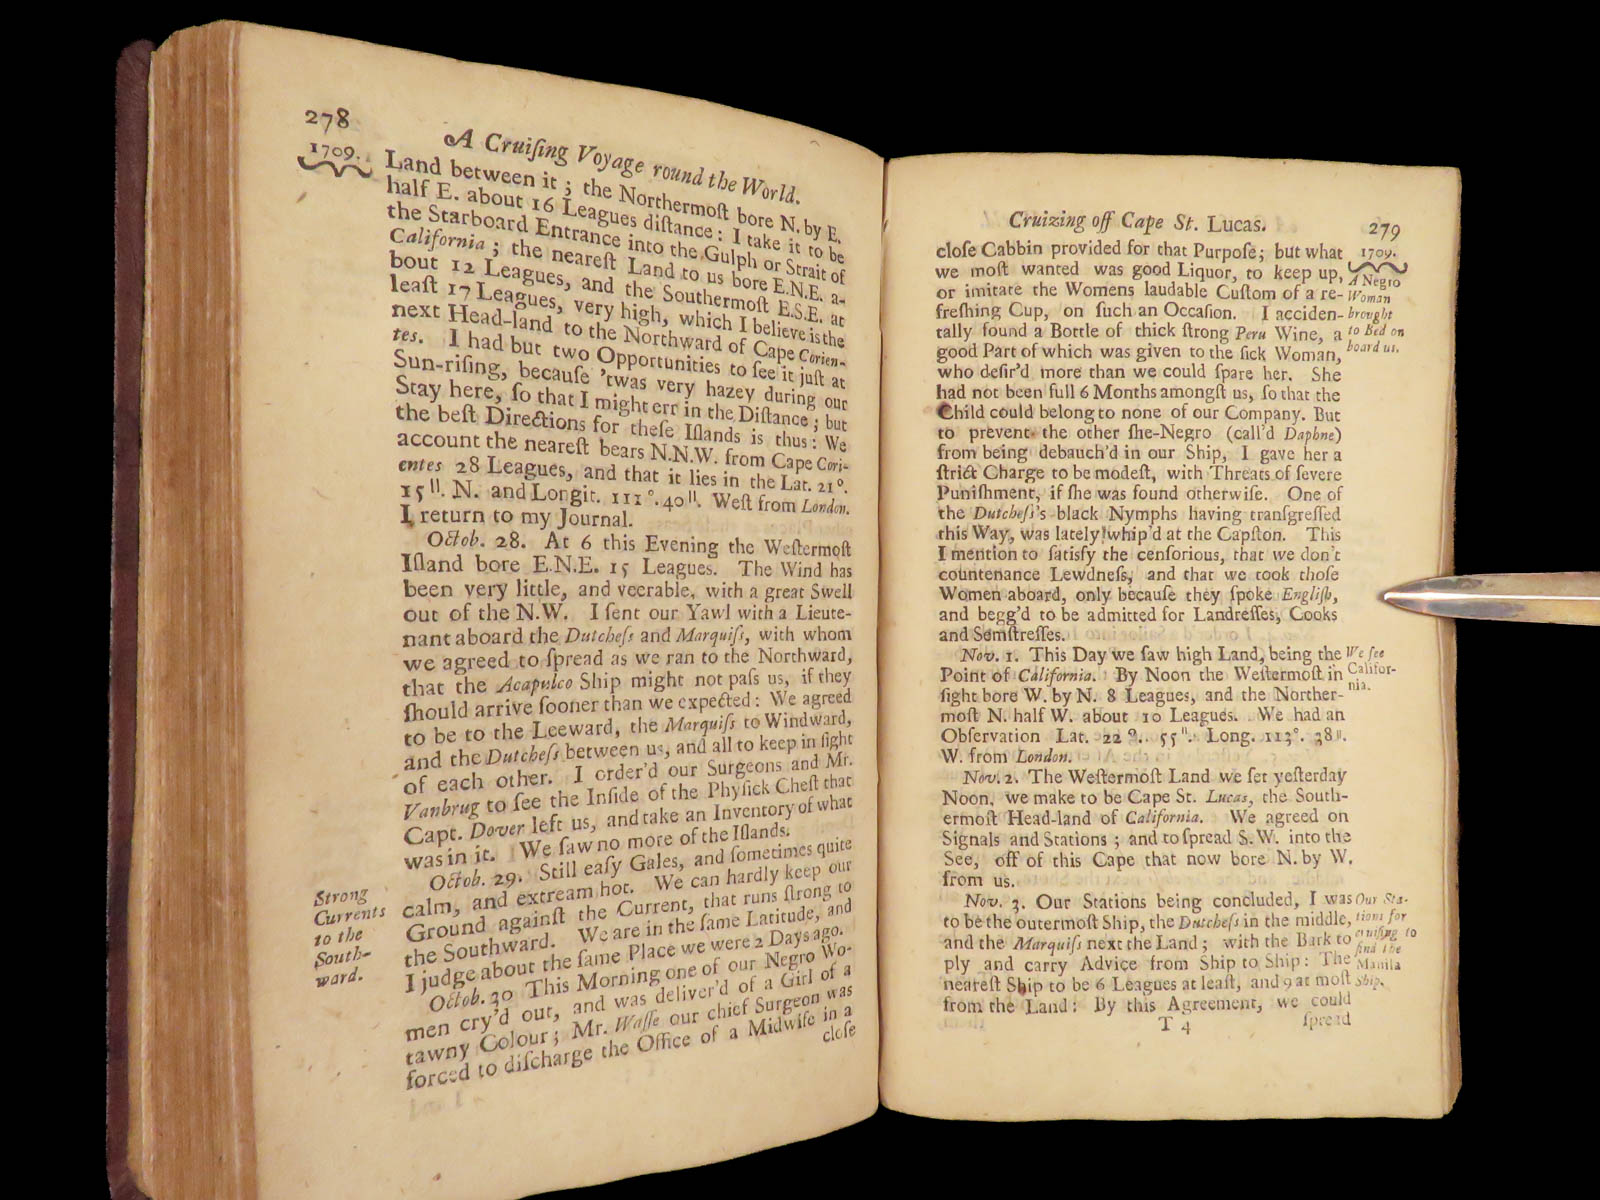 278
A Cruiſing Voyage round the World.
1709.
Land between it; the Northermoſt bore N. by E.
half E. about 16 Leagues diſtance: I take it to be
the Starboard Entrance into the Gulph or Strait of
California; the neareſt Land to us bore E.N.E. a-
bout 12 Leagues, and the Southermoſt E.S.E. at
leaſt 17 Leagues, very high, which I believe is the
next Head-land to the Northward of Cape Corien-
tes. I had but two Opportunities to ſee it juſt at
Sun-riſing, becauſe 'twas very hazey during our
Stay here, ſo that I might err in the Diſtance; but
the beſt Directions for theſe Iſlands is thus: We
account the neareſt bears N.N.W. from Cape Cori-
entes 28 Leagues, and that it lies in the Lat. 21°.
15ˡˡ. N. and Longit. 111°. 40ˡˡ. Weſt from London.
I return to my Journal.
Octob. 28. At 6 this Evening the Weſtermoſt
Iſland bore E.N.E. 15 Leagues. The Wind has
been very little, and veerable, with a great Swell
out of the N.W. I ſent our Yawl with a Lieute-
nant aboard the Dutcheſs and Marquiſs, with whom
we agreed to ſpread as we ran to the Northward,
that the Acapulco Ship might not paſs us, if they
ſhould arrive ſooner than we expected: We agreed
to be to the Leeward, the Marquiſs to Windward,
and the Dutcheſs between us, and all to keep in ſight
of each other. I order'd our Surgeons and Mr.
Vanbrug to ſee the Inſide of the Phyſick Cheſt that
Capt. Dover left us, and take an Inventory of what
was in it. We ſaw no more of the Iſlands.
Octob. 29. Still eaſy Gales, and ſometimes quite
calm, and extream hot. We can hardly keep our
Ground againſt the Current, that runs ſtrong to
the Southward. We are in the ſame Latitude, and
I judge about the ſame Place we were 2 Days ago.
Strong
Currents
to the
South-
ward.
Octob. 30 This Morning one of our Negro Wo-
men cry'd out, and was deliver'd of a Girl of a
tawny Colour; Mr. Waſſe our chief Surgeon was
forced to diſcharge the Office of a Midwife in a
cloſe
Cruizing off Cape St. Lucas.
279
cloſe Cabbin provided for that Purpoſe; but what
we moſt wanted was good Liquor, to keep up,
or imitate the Womens laudable Cuſtom of a re-
freſhing Cup, on ſuch an Occaſion. I acciden-
tally found a Bottle of thick ſtrong Peru Wine, a
good Part of which was given to the ſick Woman,
who deſir'd more than we could ſpare her. She
had not been full 6 Months amongſt us, ſo that the
Child could belong to none of our Company. But
to prevent the other ſhe-Negro (call'd Daphne)
from being debauch'd in our Ship, I gave her a
ſtrict Charge to be modeſt, with Threats of ſevere
Puniſhment, if ſhe was found otherwiſe. One of
the Dutcheſs's black Nymphs having tranſgreſſed
this Way, was lately whip'd at the Capſton. This
I mention to ſatisfy the cenſorious, that we don't
countenance Lewdneſs, and that we took thoſe
Women aboard, only becauſe they ſpoke Engliſh,
and begg'd to be admitted for Landreſſes, Cooks
and Semſtreſſes.
1709.
A Negro
Woman
brought
to Bed on
board us.
Nov. 1. This Day we ſaw high Land, being the
Point of California. By Noon the Weſtermoſt in
ſight bore W. by N. 8 Leagues, and the Norther-
moſt N. half W. about 10 Leagues. We had an
Obſervation Lat. 22°. 55ˡˡ. Long. 113°. 38ˡˡ.
W. from London.
We ſee
Califor-
nia.
Nov. 2. The Weſtermoſt Land we ſet yeſterday
Noon, we make to be Cape St. Lucas, the South-
ermoſt Head-land of California. We agreed on
Signals and Stations; and to ſpread S.W. into the
See, off of this Cape that now bore N. by W.
from us.
Nov. 3. Our Stations being concluded, I was
to be the outermoſt Ship, the Dutcheſs in the middle,
and the Marquiſs next the Land; with the Bark to
ply and carry Advice from Ship to Ship: The
neareſt Ship to be 6 Leagues at leaſt, and 9 at moſt
from the Land: By this Agreement, we could
Our Sta-
tions for
cruiſing to
find the
Manila
Ship.
T 4
ſpread